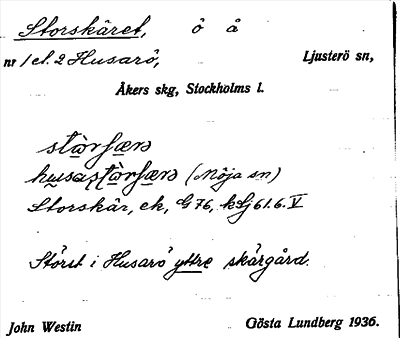 Storskäret, ö å
nr 1 el. 2 Husarö, Ljusterö sn,
Åkers skg, Stockholms l.
(Möja sn)
Storskär, ek, G 76, kSj 61.6. V
Störst i Husarö yttre skärgård.
John Westin Gösta Lundberg 1936.